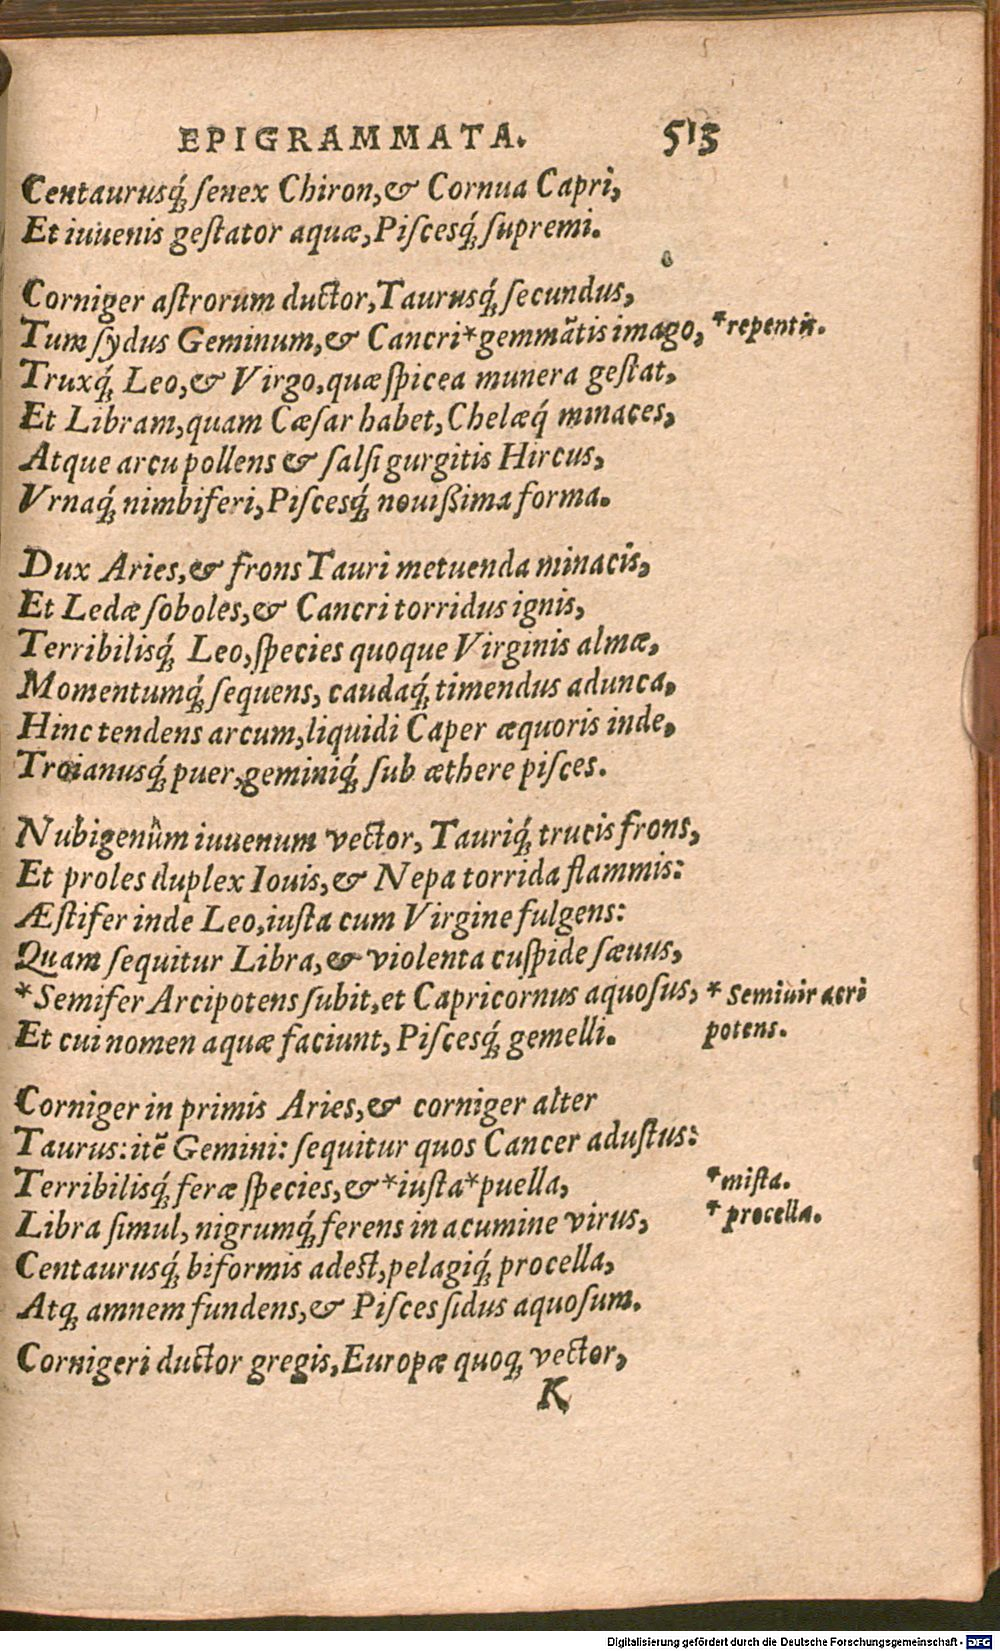 EPIGRAMMATA. 513
Centaurusq́ꝫ ſenex Chiron,& Cornua Capri,
Et iuuenis geſtator aquæ,Piſcesq́ꝫ ſupremi.
Corniger aſtrorum ductor,Taurusq́ꝫ ſecundus,
Tum ſydus Geminum,& Cancri*gemmãtis imago, *repentis.
Truxq́ꝫ Leo,& Virgo,quæ ſpicea munera geſtat,
Et Libram,quam Cæſar habet,Chelæq́ minaces,
Atque arcu pollens & ſalſi gurgitis Hircus,
Vrnaq́ꝫ nimbiferi,Piſcesq́ꝫ nouiſsima forma.
Dux Aries,& frons Tauri metuenda minacis,
Et Ledæ ſoboles,& Cancri torridus ignis,
Terribilisq́ꝫ Leo,ſpecies quoque Virginis almæ,
Momentumq́ꝫ ſequens, caudaq́ꝫ timendus adunca,
Hinc tendens arcum,liquidi Caper æquoris inde,
Troianusq́ꝫ puer,geminiq́ꝫ ſub æthere piſces.
Nubigenûm iuuenum vector, Tauriq́ꝫ trucis frons,
Et proles duplex Iouis,& Nepa torrida flammis:
Æſtifer inde Leo,iuſta cum Virgine fulgens:
Quam ſequitur Libra,& violenta cuſpide ſæuus,
*Semifer Arcipotens ſubit,et Capricornus aquoſus, * Semiuir acri
Et cui nomen aquæ faciunt, Piſcesq́ꝫ gemelli. potens.
Corniger in primis Aries,& corniger alter
Taurus:itẽ Gemini: ſequitur quos Cancer aduſtus:
Terribilisq́ꝫ feræ ſpecies,&*iuſta*puella, *miſta.
Libra ſimul, nigrumq́ꝫ ferens in acumine virus, * procella.
Centaurusq́ꝫ biformis adeſt,pelagiq́ꝫ procella,
Atqꝫ amnem fundens,& Piſces ſidus aquoſum.
Cornigeri ductor gregis,Europæ quoqꝫ vector,
K
Digitalisierung gefördert durch die Deutsche Forschungsgemeinschaft - DFG